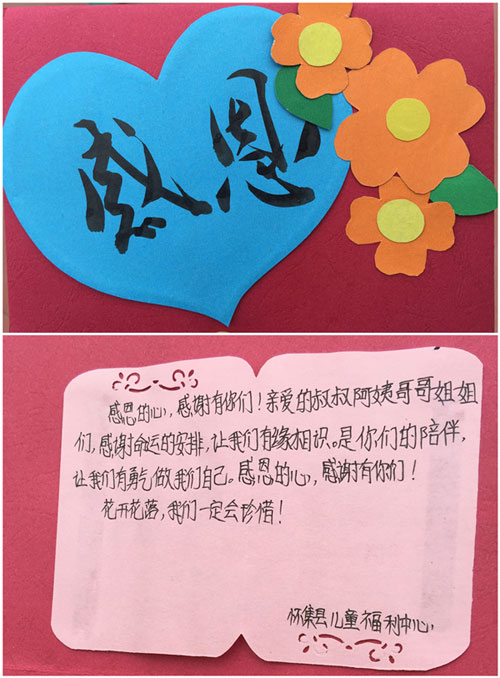 感恩
感恩的心，感谢有你们！亲爱的叔叔阿姨哥哥姐姐
们，感谢命运的安排，让我们有缘相识。是你们的陪伴，
让我们有勇气做我们自己。感恩的心，感谢有你们！
花开花落，我们一定会珍惜！
怀集县儿童福利中心